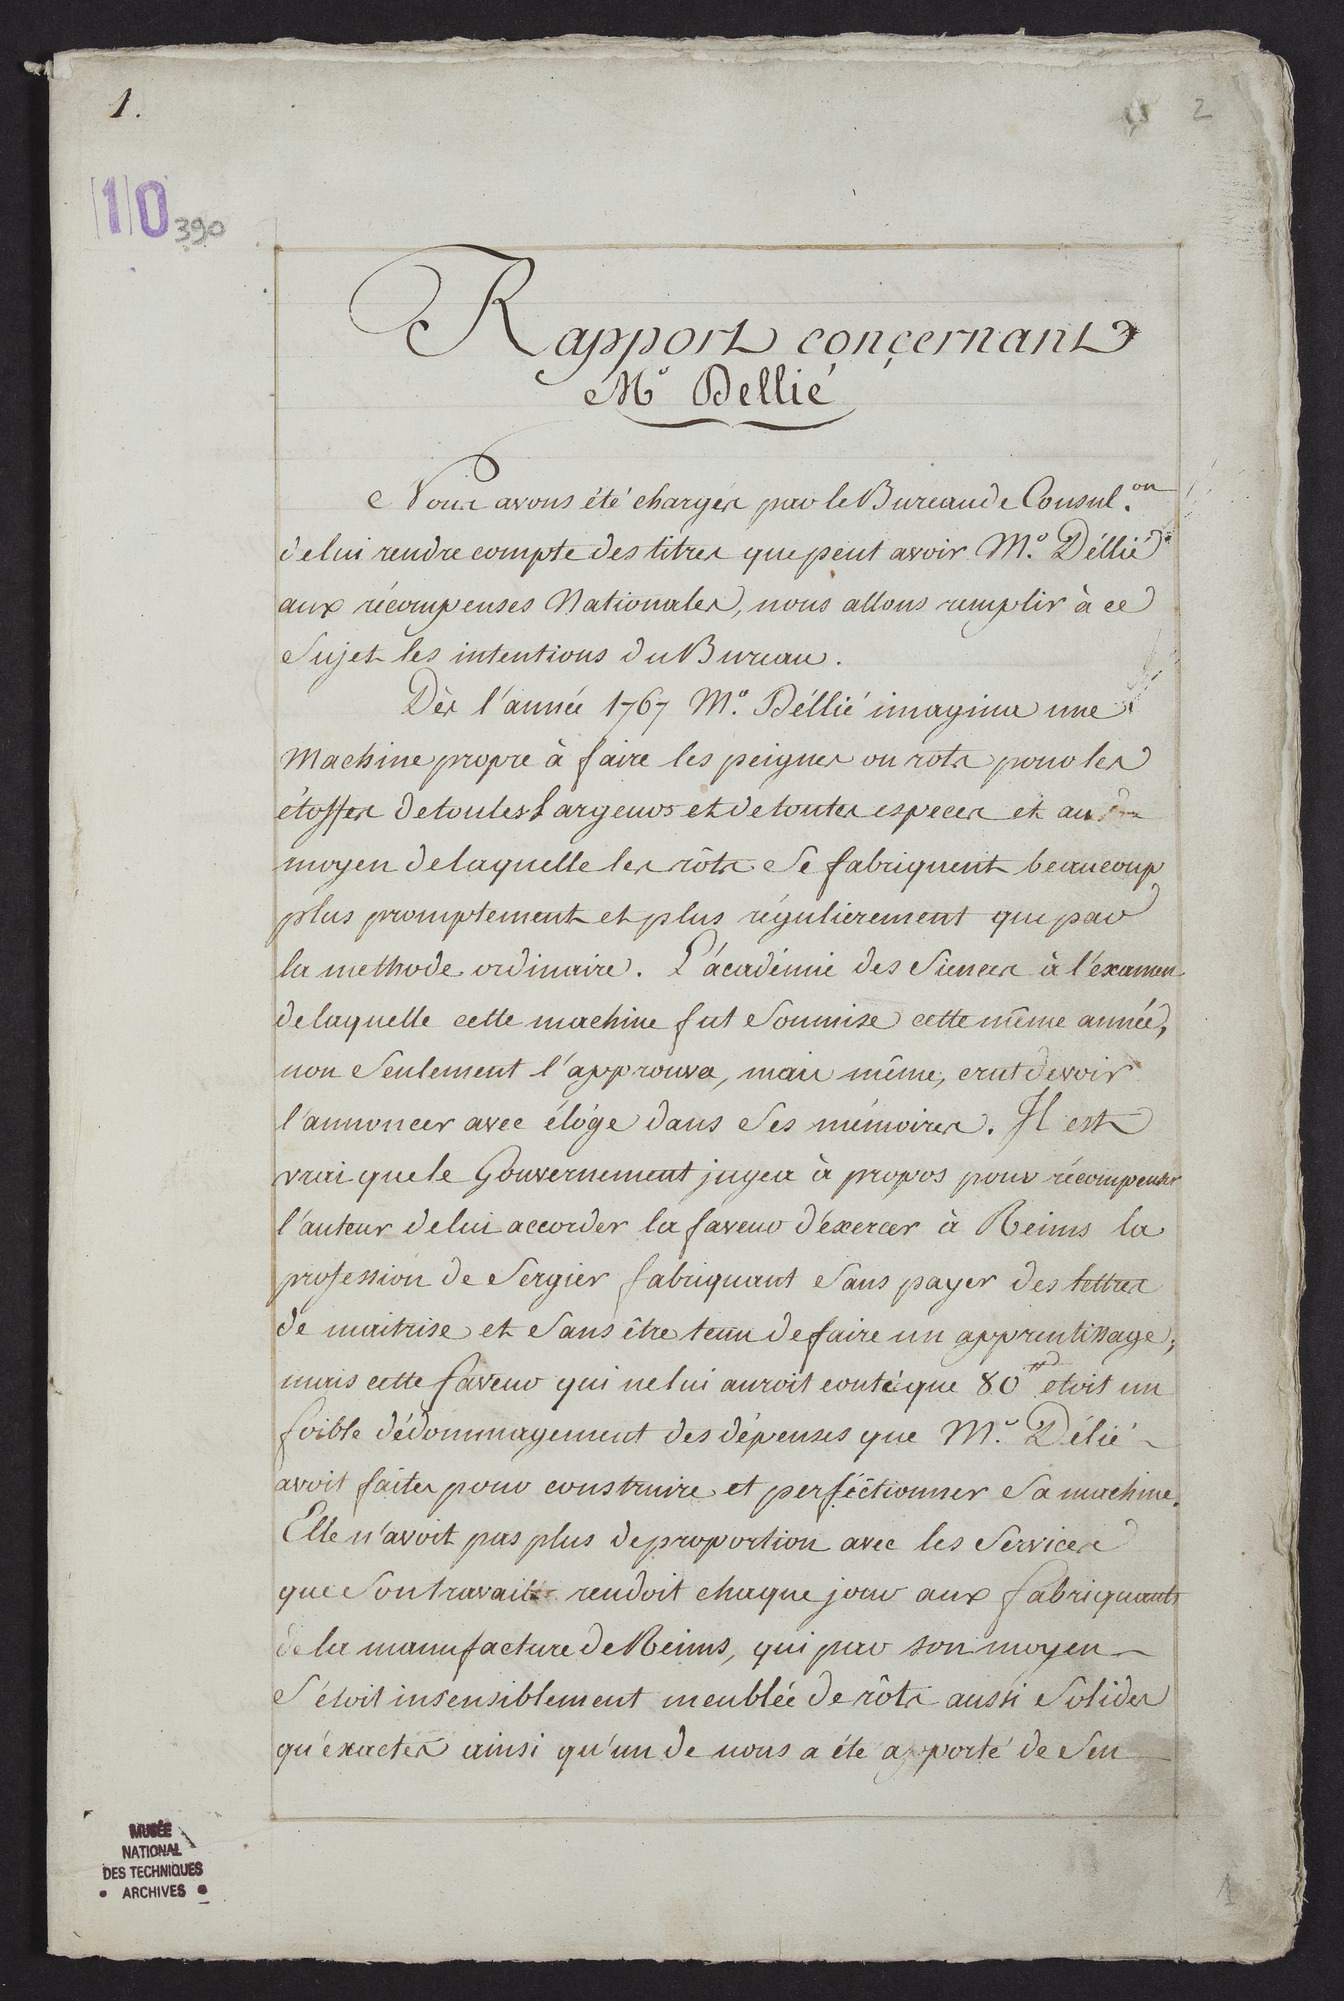 1.
2
10
390
Rapport conçernant
Mr. Dellié
Nous avons été chargés par le Bureau de Consul.on
de lui rendre compte des titres que peut avoir Mr. Déllié
aux récompenses Nationales, nous allons remplir à ce
Sujet les intentions du Bureau.
Dès l'année 1767 Mr. Déllié imagina une
Machine propre à faire les peignes ou rots pour les
étoffes de toutes Largeurs et de toutes especes et au
moyen de laquelle les rôts Se fabriquent beaucoup
plus promptement et plus régulierement que par
la methode ordinaire. L'académie des Siences à l'éxamen
de laquelle cette machine fut Soumise cette même année,
non Seulement l'approuva, mais même, crut devoir
l'annoncer avec éloge dans Ses mémoires. Il est
vrai que le Gouvernement jugea à propos pour récompenser
l'auteur de lui accorder la faveur d'éxercer à Reims la
profession de Sergier fabriquant Sans payer des lettres
de maitrise et Sans être tenu de faire un apprentissage;
mais cette faveur qui ne lui auroit couté que 80tt étoit un
foible dédommagement des dépenses que Mr. Délié
avoit faites pour construire et perféctionner Sa machine.
Elle n'avoit pas plus de proportion avec les Services
que Son travail rendoit chaque jour aux fabriquants
de la manufacture de Reims, qui par son moyen
S'étoit insensiblement meublée de rôts aussi Solides
qu'éxactes ainsi qu'un de nous a été apporté de S'en
MUSÉE
NATIONAL
DES TECHNIQUES
• ARCHIVES •
1